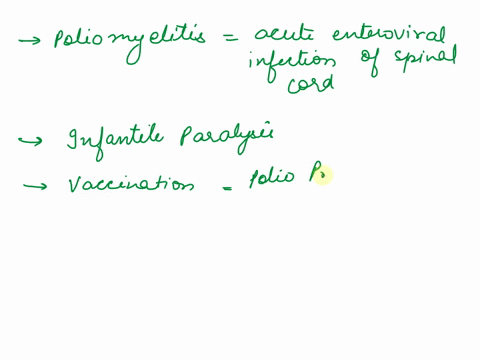 → Poliomyelitis = acute enteroviral
infection of spinal
cord
→ Infantile Paralysis
→ Vaccination = Polio